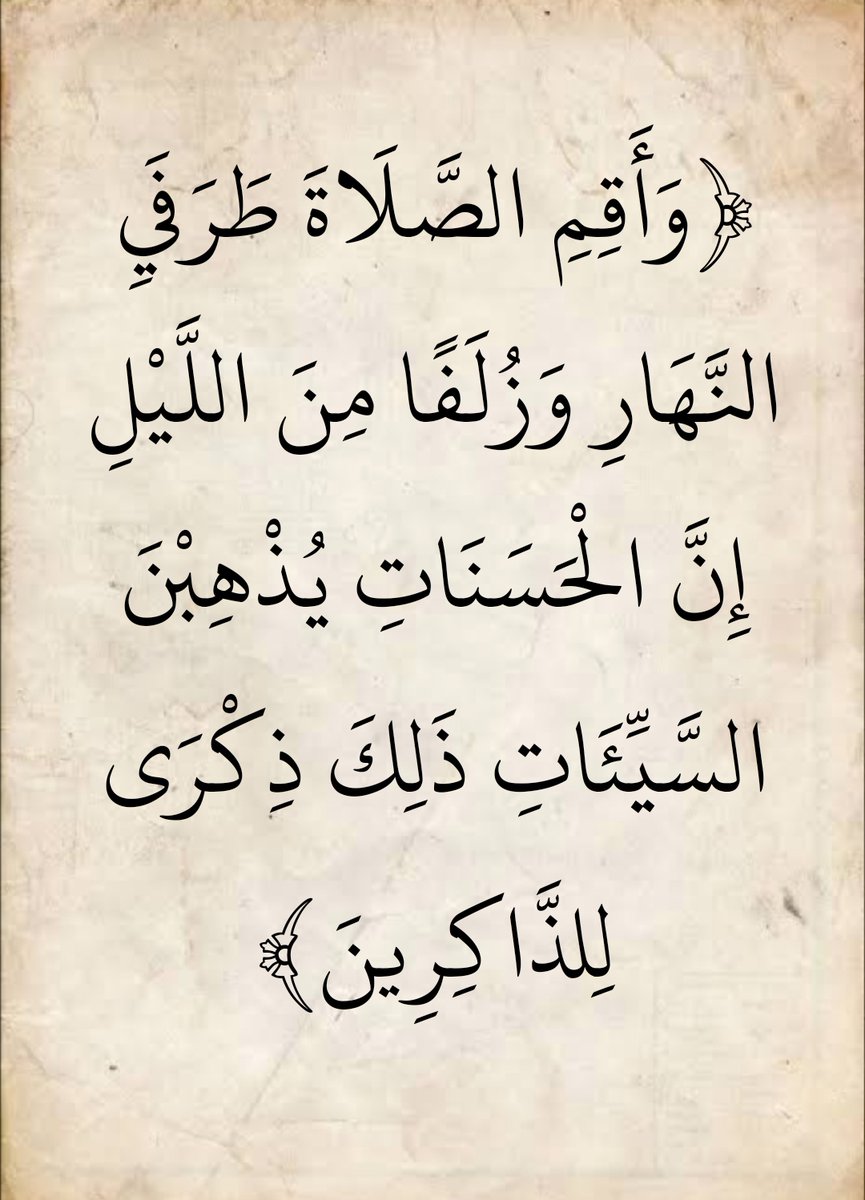 ﴿وَأَقِمِ الصَّلَاةَ طَرَفَيِ
النَّهَارِ وَزُلَفًا مِنَ اللَّيْلِ
إِنَّ الْحَسَنَاتِ يُذْهِبْنَ
السَّيِّئَاتِ ذَلِكَ ذِكْرَى
لِلذَّاكِرِينَ﴾